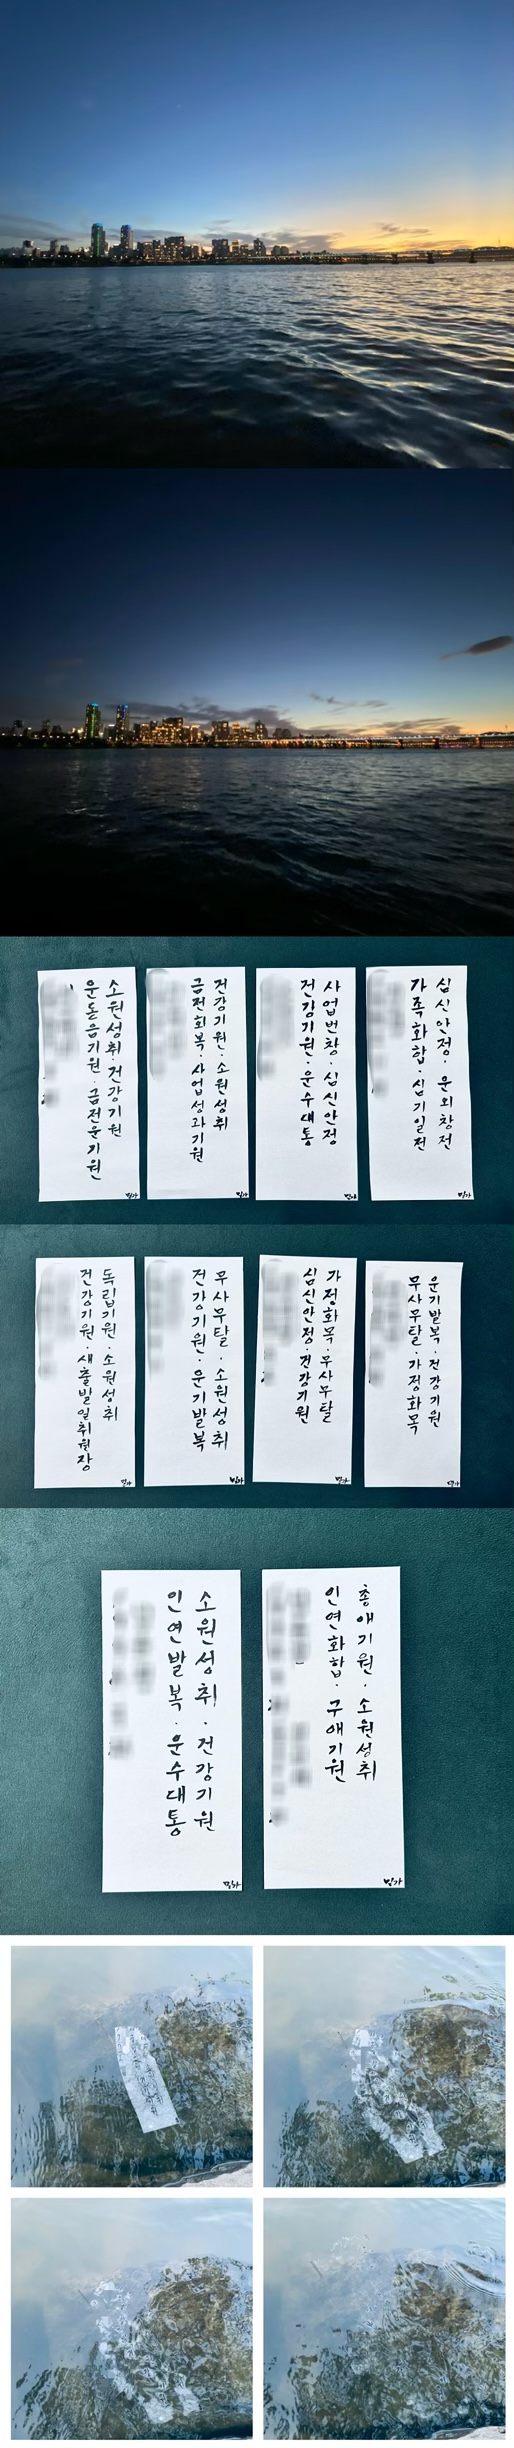 소원성취·건강기원
운돋음기원·금전운기원
건강기원·소원성취
금전회복·사업성과기원
사업번창·심신안정
건강기원·운수대통
심신안정·운외창전
가족화합·심기일전
독립기원·소원성취
건강기원·새출발일취월장
무사무탈·소원성취
건강기원·운기발복
가정화목·무사무탈
심신안정·건강기원
운기발복·건강기원
무사무탈·가정화목
소원성취·건강기원
인연발복·운수대통
총애기원·소원성취
인연화합·구애기원